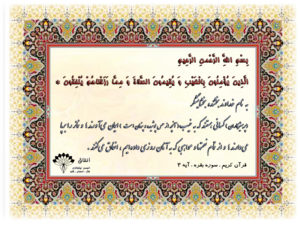 بِسْمِ اللَّهِ الرَّحْمَنِ الرَّحِيمِ
الَّذِينَ يُؤْمِنُونَ بِالْغَيْبِ وَ يُقِيمُونَ الصَّلَاةَ وَ مِمَّا رَزَقْنَاهُمْ يُنْفِقُونَ
به نام خداوند بخشنده بخشایشگر
کسانی هستند که به غیب ایمان می‌آورند و نماز را برپا
می‌دارند و از تمام نعمتها و مواهبی که به آنان روزی داده‌ایم ، انفاق می‌کنند .
قرآن کریم ، سوره بقره ، آیه ۳
انفاق